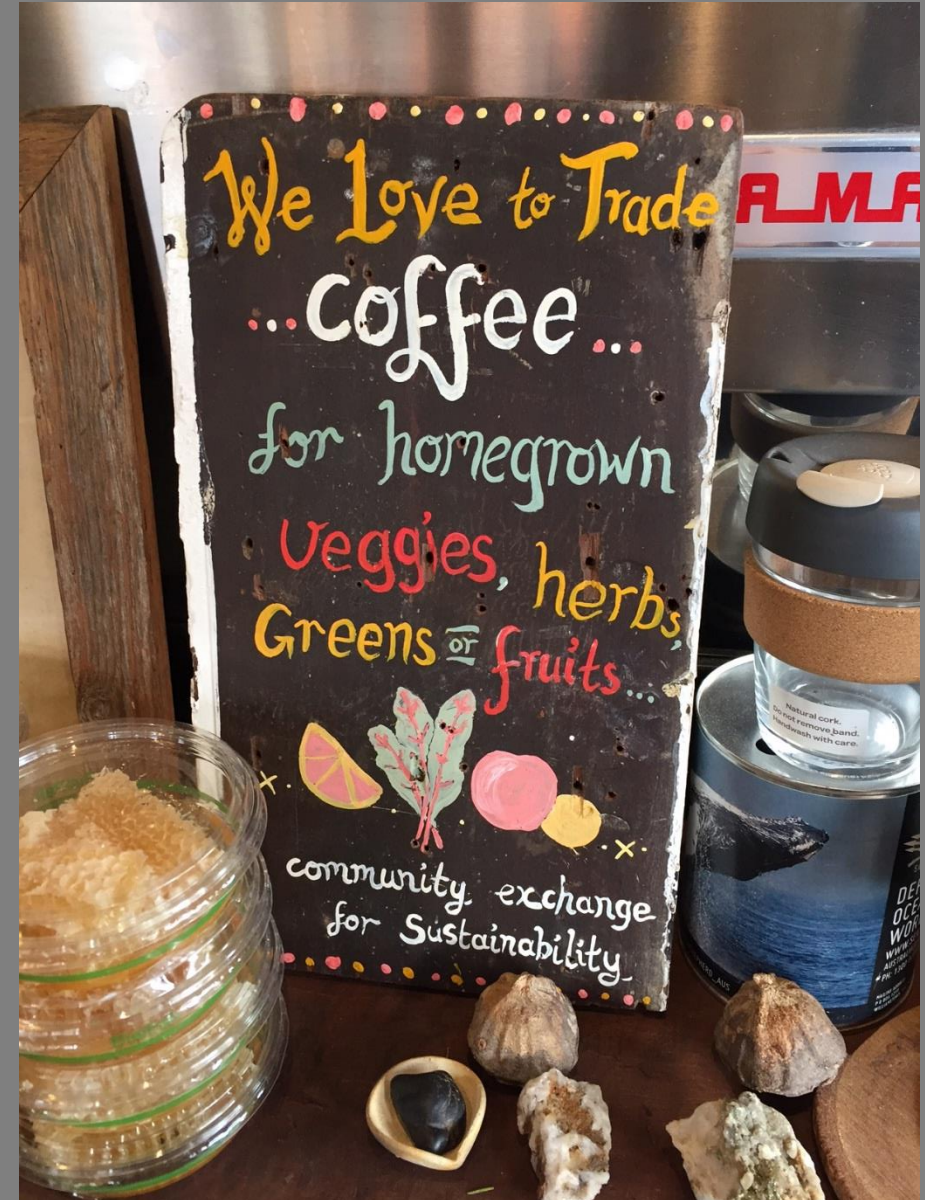 We Love to Trade
...coffee...
for homegrown
veggies, herbs,
Greens or fruits...
community exchange
for Sustainability
Natural cork.
Do not remove band.
Handwash with care.